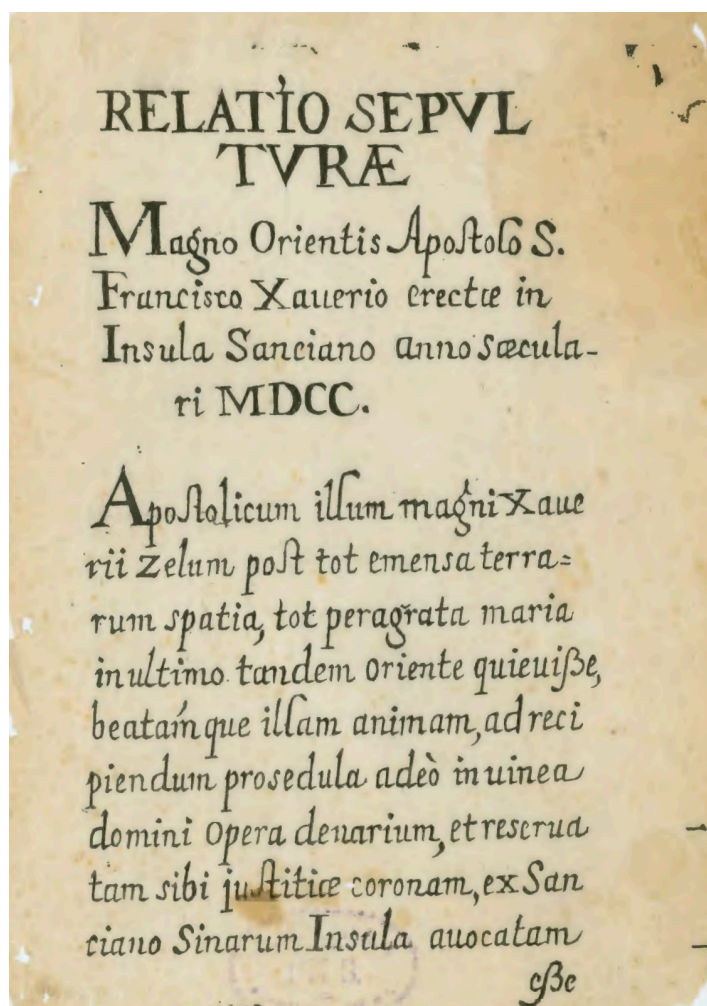 RELATIO SEPVL
TVRÆ
Magno Orientis Apostolo S.
Francisco Xauerio erectæ in
Insula Sanciano anno sæcula-
ri MDCC.
Apostolicum illum magni Xaue
rii zelum post tot emensa terra=
rum spatia, tot peragrata maria
in ultimo tandem oriente quieuiße,
beatámque illam animam, ad reci
piendum pro sedula adeò in uinea
domini opera denarium, et reserua
tam sibi justitiæ coronam, ex San
ciano Sinarum Insula auocatam
eße